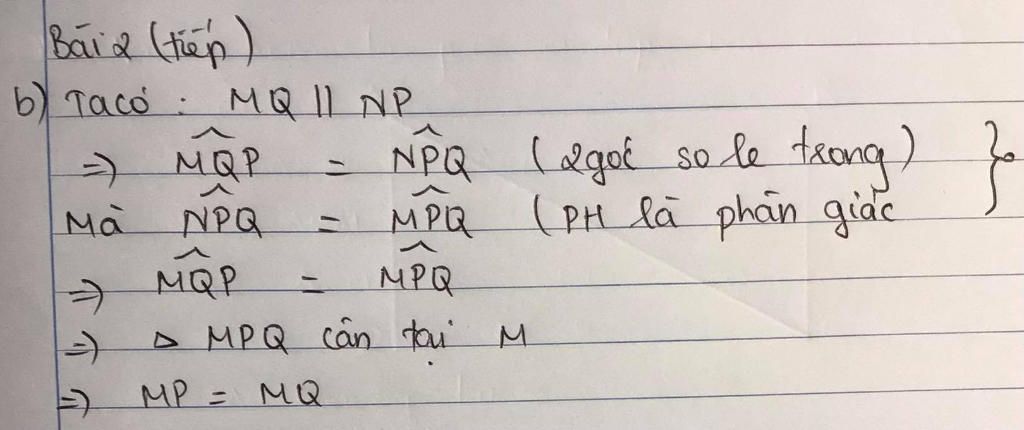 Bài 2 (tiếp)
b) Ta có : MQ || NP
=> \widehat{MQP} = \widehat{NPQ} (2 góc so le trong) }
Mà \widehat{NPQ} = \widehat{MPQ} (PH là phân giác
=> \widehat{MQP} = \widehat{MPQ}
=> △ MPQ cân tại M
=> MP = MQ